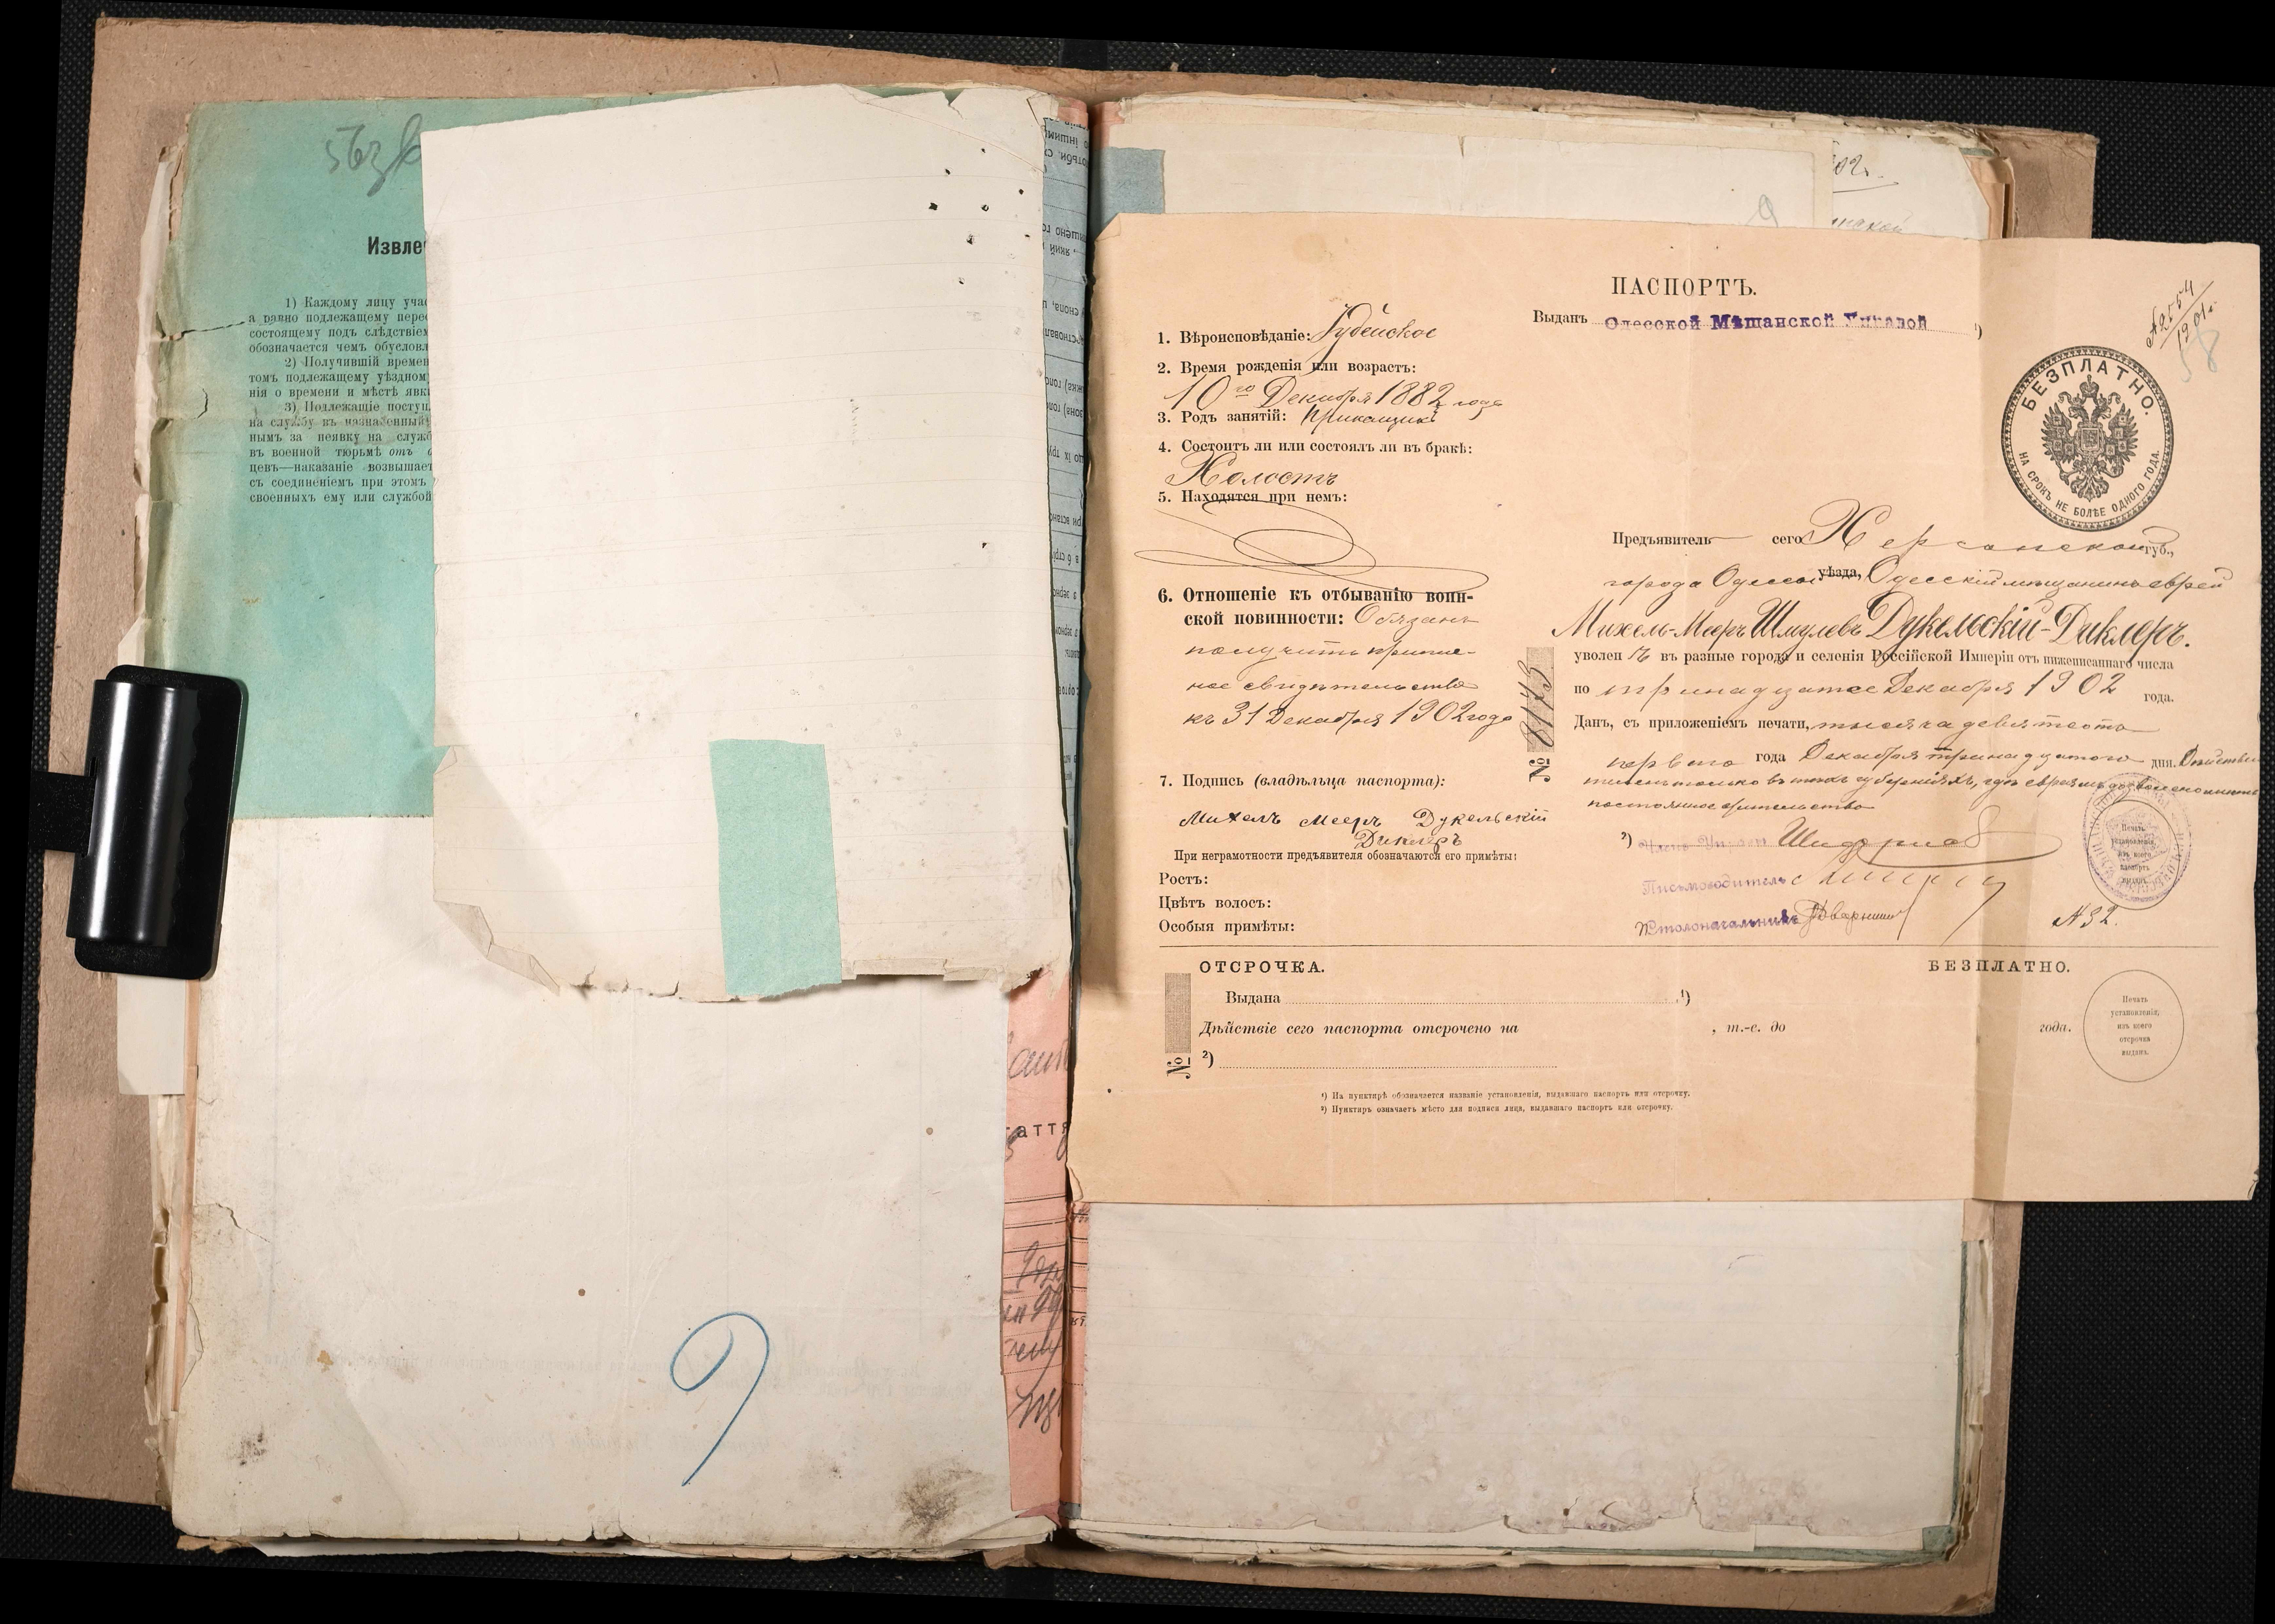 Извле
1) Каждому лицу учас
а равно подлежащему перес
состоящему подъ слѣдствіем
обозначается чемъ обусловл
2) Получившій времен
томъ подлежащему уѣздному
нія о времени и мѣстѣ явки
3) Подлежащіе поступл
на службу въ назначенный
нымъ за неявку на служб
въ военной тюрьмѣ отъ
цевъ—наказаніе возвышает
съ соединеніемъ при этомъ
своенныхъ ему или службой
9
ПАСПОРТЪ.
Выданъ Одесской Мѣщанской Управой ¹)
1. Вѣроисповѣданіе: Іудейское
2. Время рожденія или возрастъ:
10го Декабря 1882 года
3. Родъ занятій: Прикащикъ
4. Состоитъ ли или состоялъ ли въ бракѣ:
Холостъ
5. Находятся при немъ:
6. Отношеніе къ отбыванію воин-
ской повинности: Обязанъ
получить припис-
ное свидѣтельство
къ 31 Декабря 1902 года
7. Подпись (владѣльца паспорта):
Михель Мееръ Дукельскій
Диклеръ
При неграмотности предъявителя обозначаются его примѣты:
Ростъ:
Цвѣтъ волосъ:
Особыя примѣты:
№ 2554
1901 г.
58
БЕЗПЛАТНО.
НА СРОКЪ НЕ БОЛѢЕ ОДНОГО ГОДА.
Предъявитель сего Херсонской губ.,
города Одессы уѣзда, Одесскій мѣщанинъ еврей
Михель-Мееръ Шмулевъ Дукельскій-Диклеръ.
уволенъ въ разные города и селенія Россійской Имперіи отъ нижеписаннаго числа
по тринадцатое Декабря 1902 года.
Данъ, съ приложеніемъ печати, тысяча девятьсотъ
перваго года Декабря тринадцатого дня. Дѣйстви
теленъ только въ тѣхъ губерніяхъ, гдѣ евреямъ дозволено имѣть
постоянное жительство
№ 8173
²) Членъ Управы
Письмоводитель
Столоначальникъ
Печать
установленія,
изъ коего
паспортъ
выданъ.
№ 32.
ОТСРОЧКА.
БЕЗПЛАТНО.
Выдана ¹)
Дѣйствіе сего паспорта отсрочено на , т.-е. до года.
№
²)
Печать
установленія,
изъ коего
отсрочка
выдана.
¹) На пунктирѣ обозначается названіе установленія, выдавшаго паспортъ или отсрочку.
²) Пунктиръ означаетъ мѣсто для подписи лица, выдавшаго паспортъ или отсрочку.